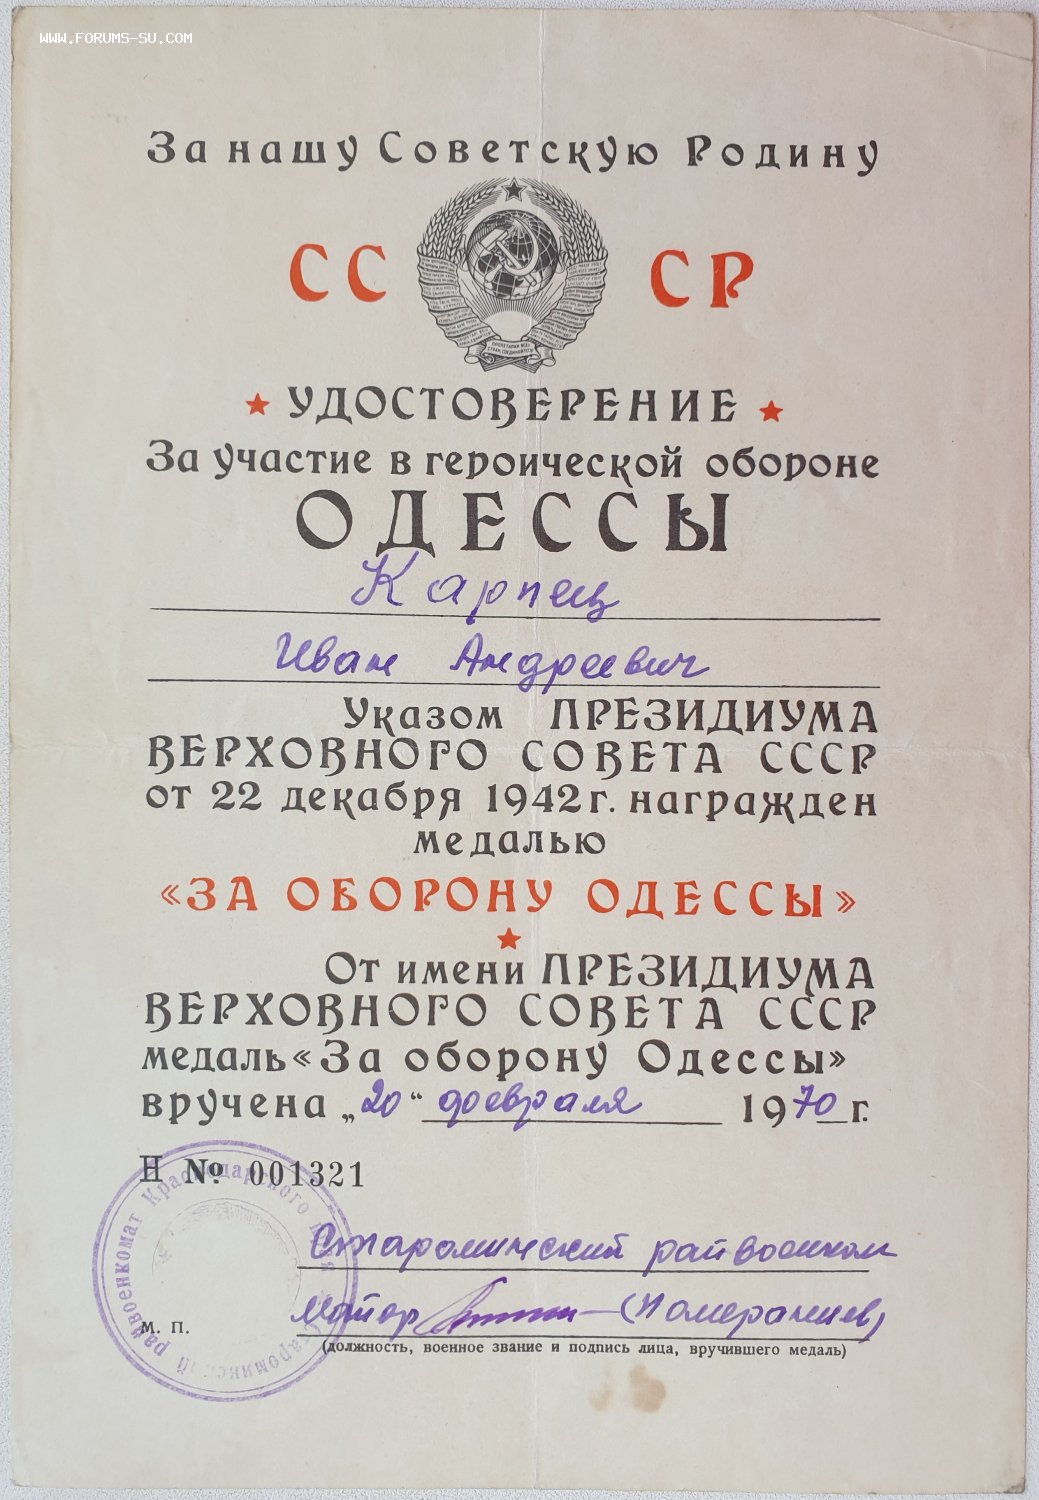 WWW.FORUMS-SU.COM
За нашу Советскую Родину
СССР
ПРОЛЕТАРИИ ВСЕХ
СТРАН, СОЕДИНЯЙТЕСЬ!
УДОСТОВЕРЕНИЕ
За участие в героической обороне
ОДЕССЫ
Карпец
Иван Андреевич
Указом ПРЕЗИДИУМА
ВЕРХОВНОГО СОВЕТА СССР
от 22 декабря 1942 г. награжден
медалью
«ЗА ОБОРОНУ ОДЕССЫ»
От имени ПРЕЗИДИУМА
ВЕРХОВНОГО СОВЕТА СССР
медаль «За оборону Одессы»
вручена „20“ февраля 1970 г.
Н № 001321
райвоенкомат Краснодарского края
Староминский райвоенком
Майор (Померанцев)
м. п.
(должность, военное звание и подпись лица, вручившего медаль)